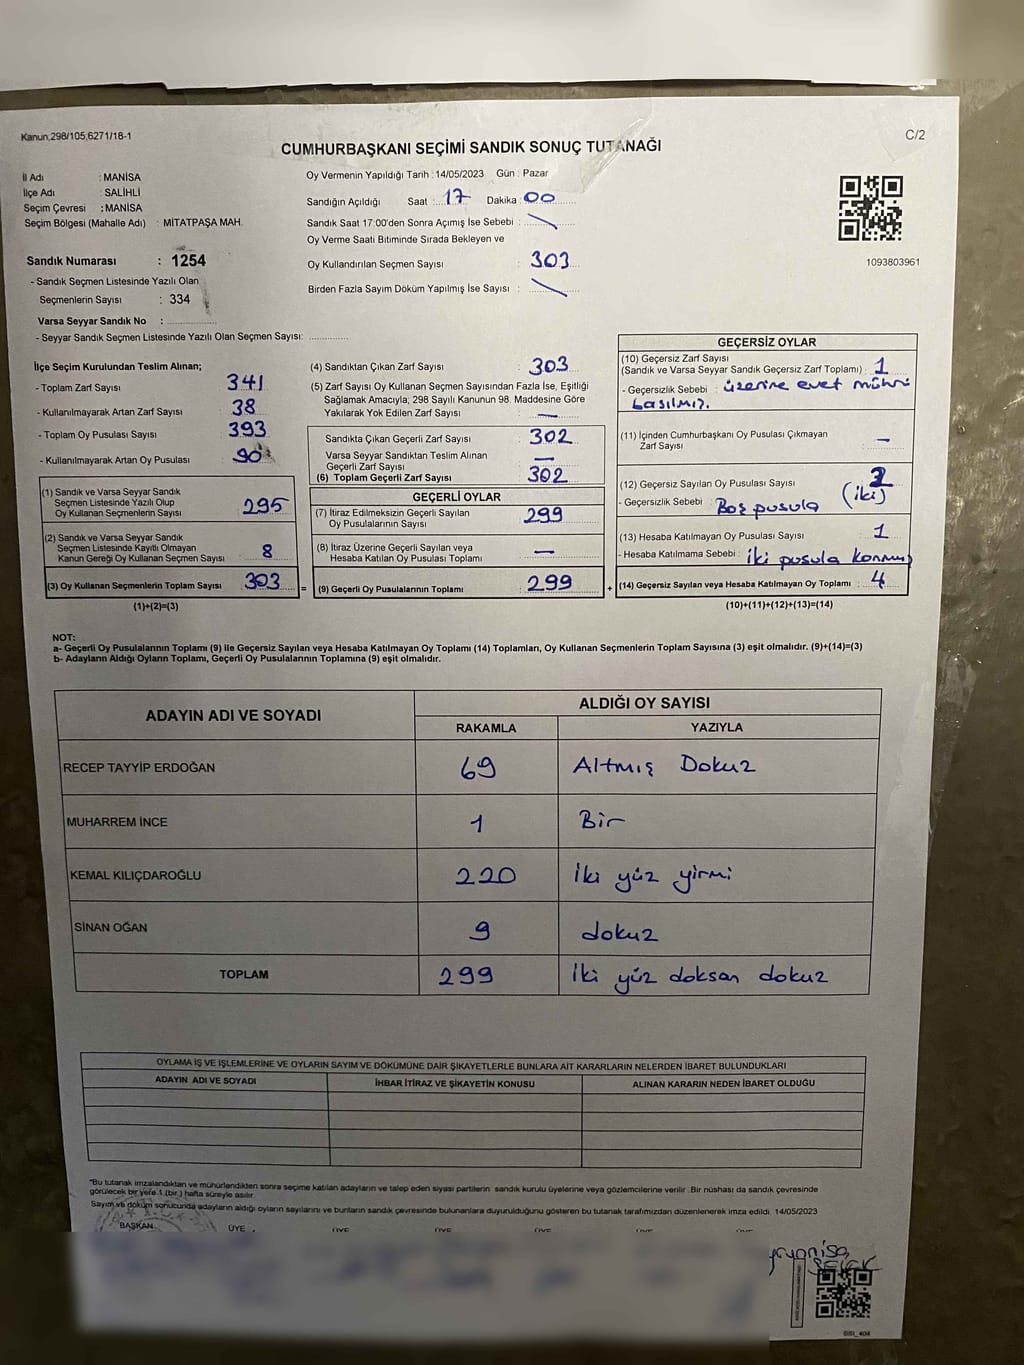 Kanun,298/105,6271/18-1
C/2
CUMHURBAŞKANI SEÇİMİ SANDIK SONUÇ TUTANAĞI
İl Adı : MANİSA
İlçe Adı : SALİHLİ
Seçim Çevresi : MANİSA
Seçim Bölgesi (Mahalle Adı) : MİTATPAŞA MAH.
Sandık Numarası : 1254
- Sandık Seçmen Listesinde Yazılı Olan
Seçmenlerin Sayısı : 334
Varsa Seyyar Sandık No :
- Seyyar Sandık Seçmen Listesinde Yazılı Olan Seçmen Sayısı:
Oy Vermenin Yapıldığı Tarih : 14/05/2023 Gün : Pazar
Sandığın Açıldığı Saat : 17 Dakika : 00
Sandık Saat 17:00'den Sonra Açımış İse Sebebi : \
Oy Verme Saati Bitiminde Sırada Bekleyen ve
Oy Kullandırılan Seçmen Sayısı : 303
Birden Fazla Sayım Döküm Yapılmış İse Sayısı : \
1093803961
İlçe Seçim Kurulundan Teslim Alınan;
- Toplam Zarf Sayısı 341
- Kullanılmayarak Artan Zarf Sayısı 38
- Toplam Oy Pusulası Sayısı 393
- Kullanılmayarak Artan Oy Pusulası 90
(1) Sandık ve Varsa Seyyar Sandık
Seçmen Listesinde Yazılı Olup
Oy Kullanan Seçmenlerin Sayısı 295
(2) Sandık ve Varsa Seyyar Sandık
Seçmen Listesinde Kayıtlı Olmayan
Kanun Gereği Oy Kullanan Seçmen Sayısı 8
(3) Oy Kullanan Seçmenlerin Toplam Sayısı 303
(1)+(2)=(3)
=
(4) Sandıktan Çıkan Zarf Sayısı 303
(5) Zarf Sayısı Oy Kullanan Seçmen Sayısından Fazla İse, Eşitliği
Sağlamak Amacıyla; 298 Sayılı Kanunun 98. Maddesine Göre
Yakılarak Yok Edilen Zarf Sayısı —
Sandıkta Çıkan Geçerli Zarf Sayısı 302
Varsa Seyyar Sandıktan Teslim Alınan
Geçerli Zarf Sayısı —
(6) Toplam Geçerli Zarf Sayısı 302
GEÇERLİ OYLAR
(7) İtiraz Edilmeksizin Geçerli Sayılan
Oy Pusulalarının Sayısı 299
(8) İtiraz Üzerine Geçerli Sayılan veya
Hesaba Katılan Oy Pusulası Toplamı —
(9) Geçerli Oy Pusulalarının Toplamı 299
+
GEÇERSİZ OYLAR
(10) Geçersiz Zarf Sayısı
(Sandık ve Varsa Seyyar Sandık Geçersiz Zarf Toplamı) : 1
- Geçersizlik Sebebi : üzerine evet mührü
basılmış.
(11) İçinden Cumhurbaşkanı Oy Pusulası Çıkmayan
Zarf Sayısı —
(12) Geçersiz Sayılan Oy Pusulası Sayısı : 2
(iki)
- Geçersizlik Sebebi : Boş pusula
(13) Hesaba Katılmayan Oy Pusulası Sayısı : 1
- Hesaba Katılmama Sebebi : iki pusula konmuş
(14) Geçersiz Sayılan veya Hesaba Katılmayan Oy Toplamı : 4
(10)+(11)+(12)+(13)=(14)
NOT:
a- Geçerli Oy Pusulalarının Toplamı (9) ile Geçersiz Sayılan veya Hesaba Katılmayan Oy Toplamı (14) Toplamları, Oy Kullanan Seçmenlerin Toplam Sayısına (3) eşit olmalıdır. (9)+(14)=(3)
b- Adayların Aldığı Oyların Toplamı, Geçerli Oy Pusulalarının Toplamına (9) eşit olmalıdır.
ADAYIN ADI VE SOYADI
ALDIĞI OY SAYISI
RAKAMLA YAZIYLA
RECEP TAYYİP ERDOĞAN 69 Altmış Dokuz
MUHARREM İNCE 1 Bir
KEMAL KILIÇDAROĞLU 220 İki yüz yirmi
SİNAN OĞAN 9 dokuz
TOPLAM 299 iki yüz doksan dokuz
OYLAMA İŞ VE İŞLEMLERİNE VE OYLARIN SAYIM VE DÖKÜMÜNE DAİR ŞİKAYETLERLE BUNLARA AİT KARARLARIN NELERDEN İBARET BULUNDUKLARI
ADAYIN ADI VE SOYADI İHBAR İTİRAZ VE ŞİKAYETİN KONUSU ALINAN KARARIN NEDEN İBARET OLDUĞU
"Bu tutanak imzalandıktan ve mühürlendikten sonra seçime katılan adayların ve talep eden siyasi partilerin sandık kurulu üyelerine veya gözlemcilerine verilir .Bir nüshası da sandık çevresinde
görülecek bir yere 1 (bir ) hafta süreyle asılır.
Sayım ve döküm sonucunda adayların aldığı oyların sayılarını ve bunların sandık çevresinde bulunanlara duyurulduğunu gösteren bu tutanak tarafımızdan düzenlenerek imza edildi. 14/05/2023
BAŞKAN ÜYE ÜYE ÜYE ÜYE ÜYE ÜYE